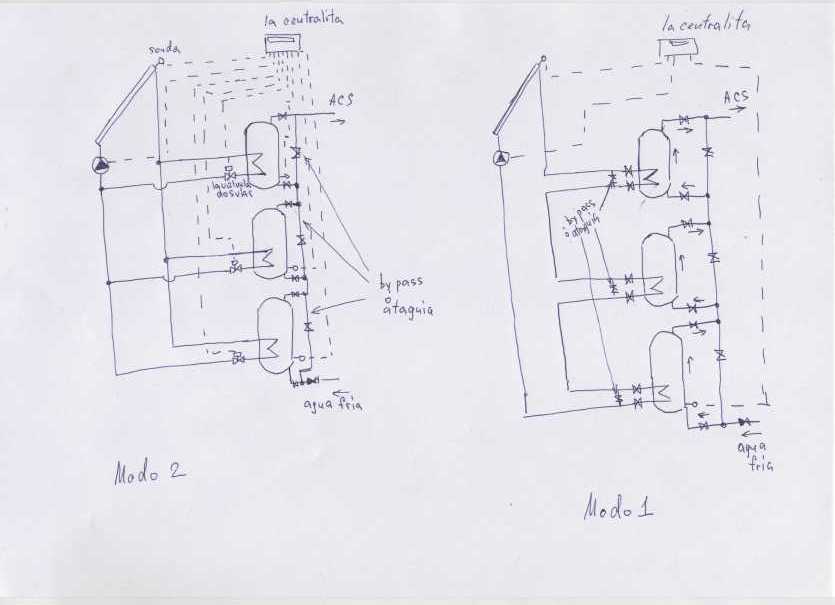 la centralita
sonda
ACS
la valvula
by pass
ò ataguia
agua fria
Modo 2
la centralita
ACS
by pass
ò ataguia
agua
fria
Modo 1